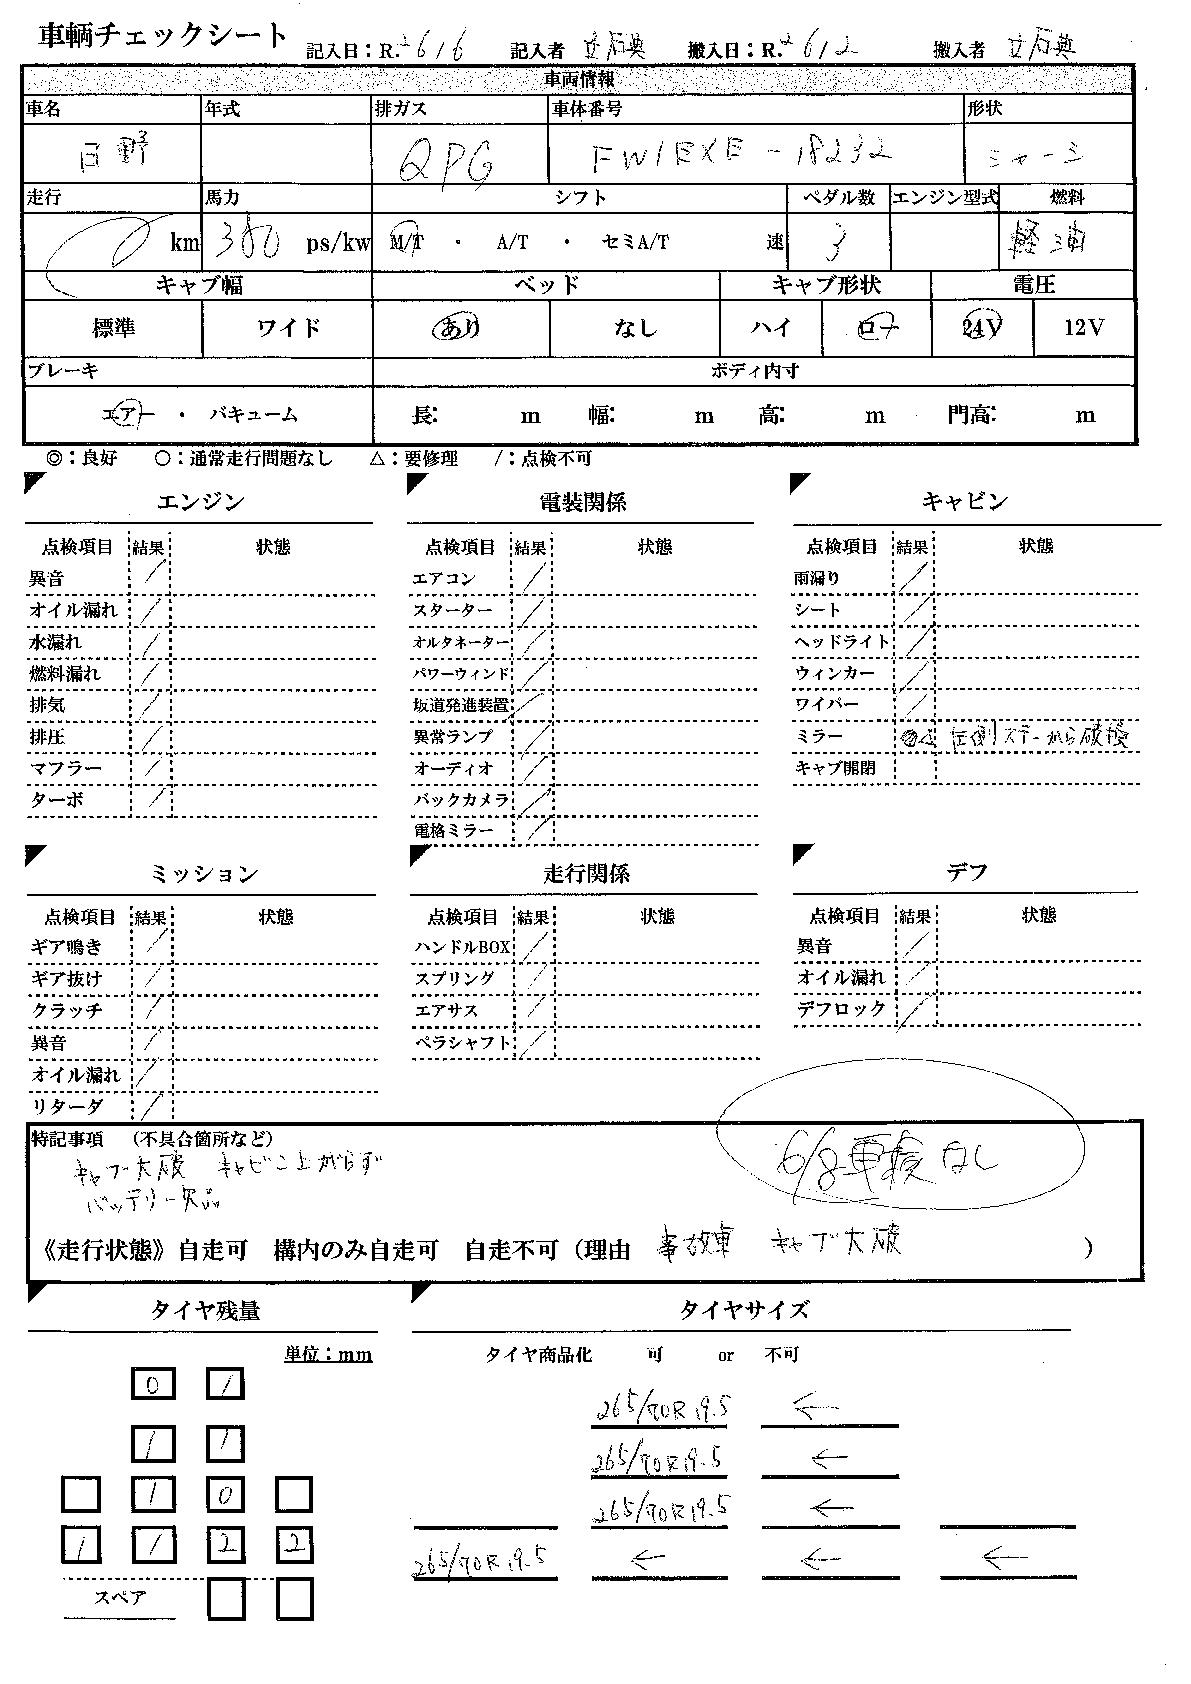 車輌チェックシート 記入日:R.2 6/6 記入者 立石典 搬入日:R.2 6/2 搬入者 立石典
車両情報
車名 年式 排ガス 車体番号 形状
日野 QPG FW1EXE-18232 シャーシ
走行 馬力 シフト ペダル数 エンジン型式 燃料
km 380 ps/kw M/T ・ A/T ・ セミA/T 速 3 軽油
キャブ幅 ベッド キャブ形状 電圧
標準 ワイド あり なし ハイ ロー 24V 12V
ブレーキ ボディ内寸
エアー ・ バキューム 長: m 幅: m 高: m 門高: m
◎:良好 ○:通常走行問題なし △:要修理 /:点検不可
エンジン 電装関係 キャビン
点検項目 結果 状態 点検項目 結果 状態 点検項目 結果 状態
異音 / エアコン / 雨漏り /
オイル漏れ / スターター / シート /
水漏れ / オルタネーター / ヘッドライト /
燃料漏れ / パワーウィンド / ウィンカー /
排気 / 坂道発進装置 / ワイパー /
排圧 / 異常ランプ / ミラー △ 左側ステーから破損
マフラー / オーディオ / キャブ開閉
ターボ / バックカメラ /
電格ミラー /
ミッション 走行関係 デフ
点検項目 結果 状態 点検項目 結果 状態 点検項目 結果 状態
ギア鳴き / ハンドルBOX / 異音 /
ギア抜け / スプリング / オイル漏れ /
クラッチ / エアサス / デフロック /
異音 / ペラシャフト /
オイル漏れ /
リターダ /
特記事項 (不具合箇所など)
キャブ大破 キャビン上がらず 6/8車検なし
バッテリー欠品
《走行状態》自走可 構内のみ自走可 自走不可(理由 事故車 キャブ大破 )
タイヤ残量 タイヤサイズ
単位:mm タイヤ商品化 可 or 不可
0 1 265/70R19.5 ←
1 1 265/70R19.5 ←
1 0 265/70R19.5 ←
1 1 2 2 265/70R19.5 ← ← ←
スペア